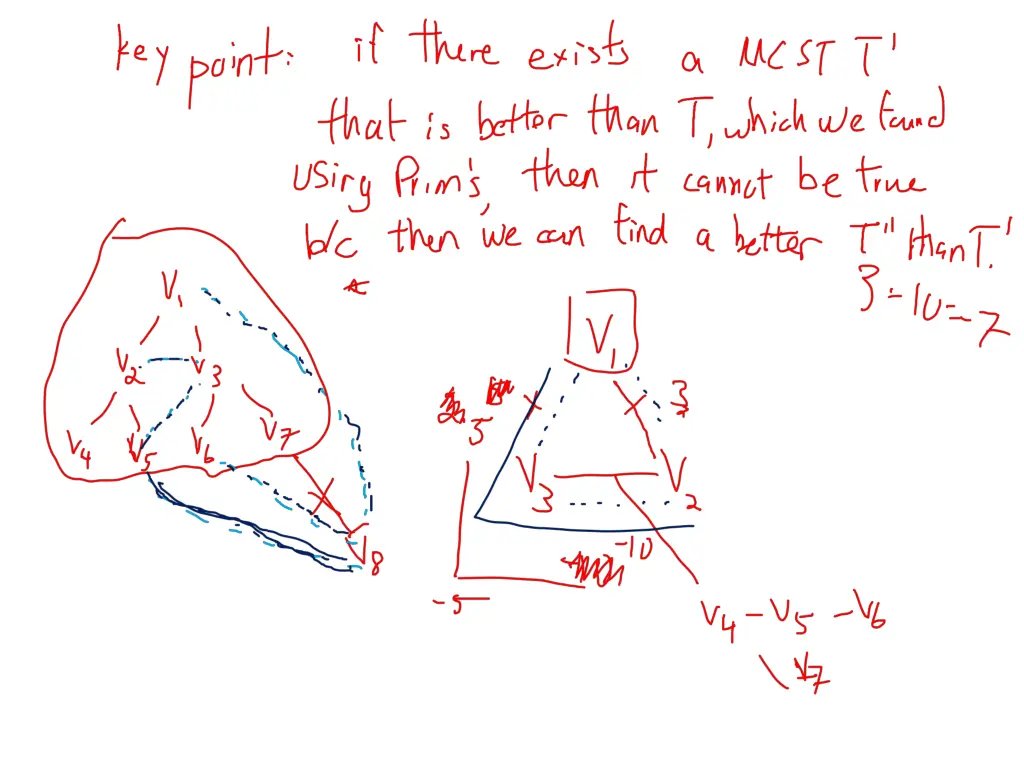 key point: if there exists a MCST T'
that is better than T, which we found
using Prim's, then it cannot be true
b/c then we can find a better T'' than T'.
3-10=-7
V1
V2 V3
V4 V5 V6 V7
V8
V1
5
3
V3 V2
-10
-5
V4 - V5 - V6
V7